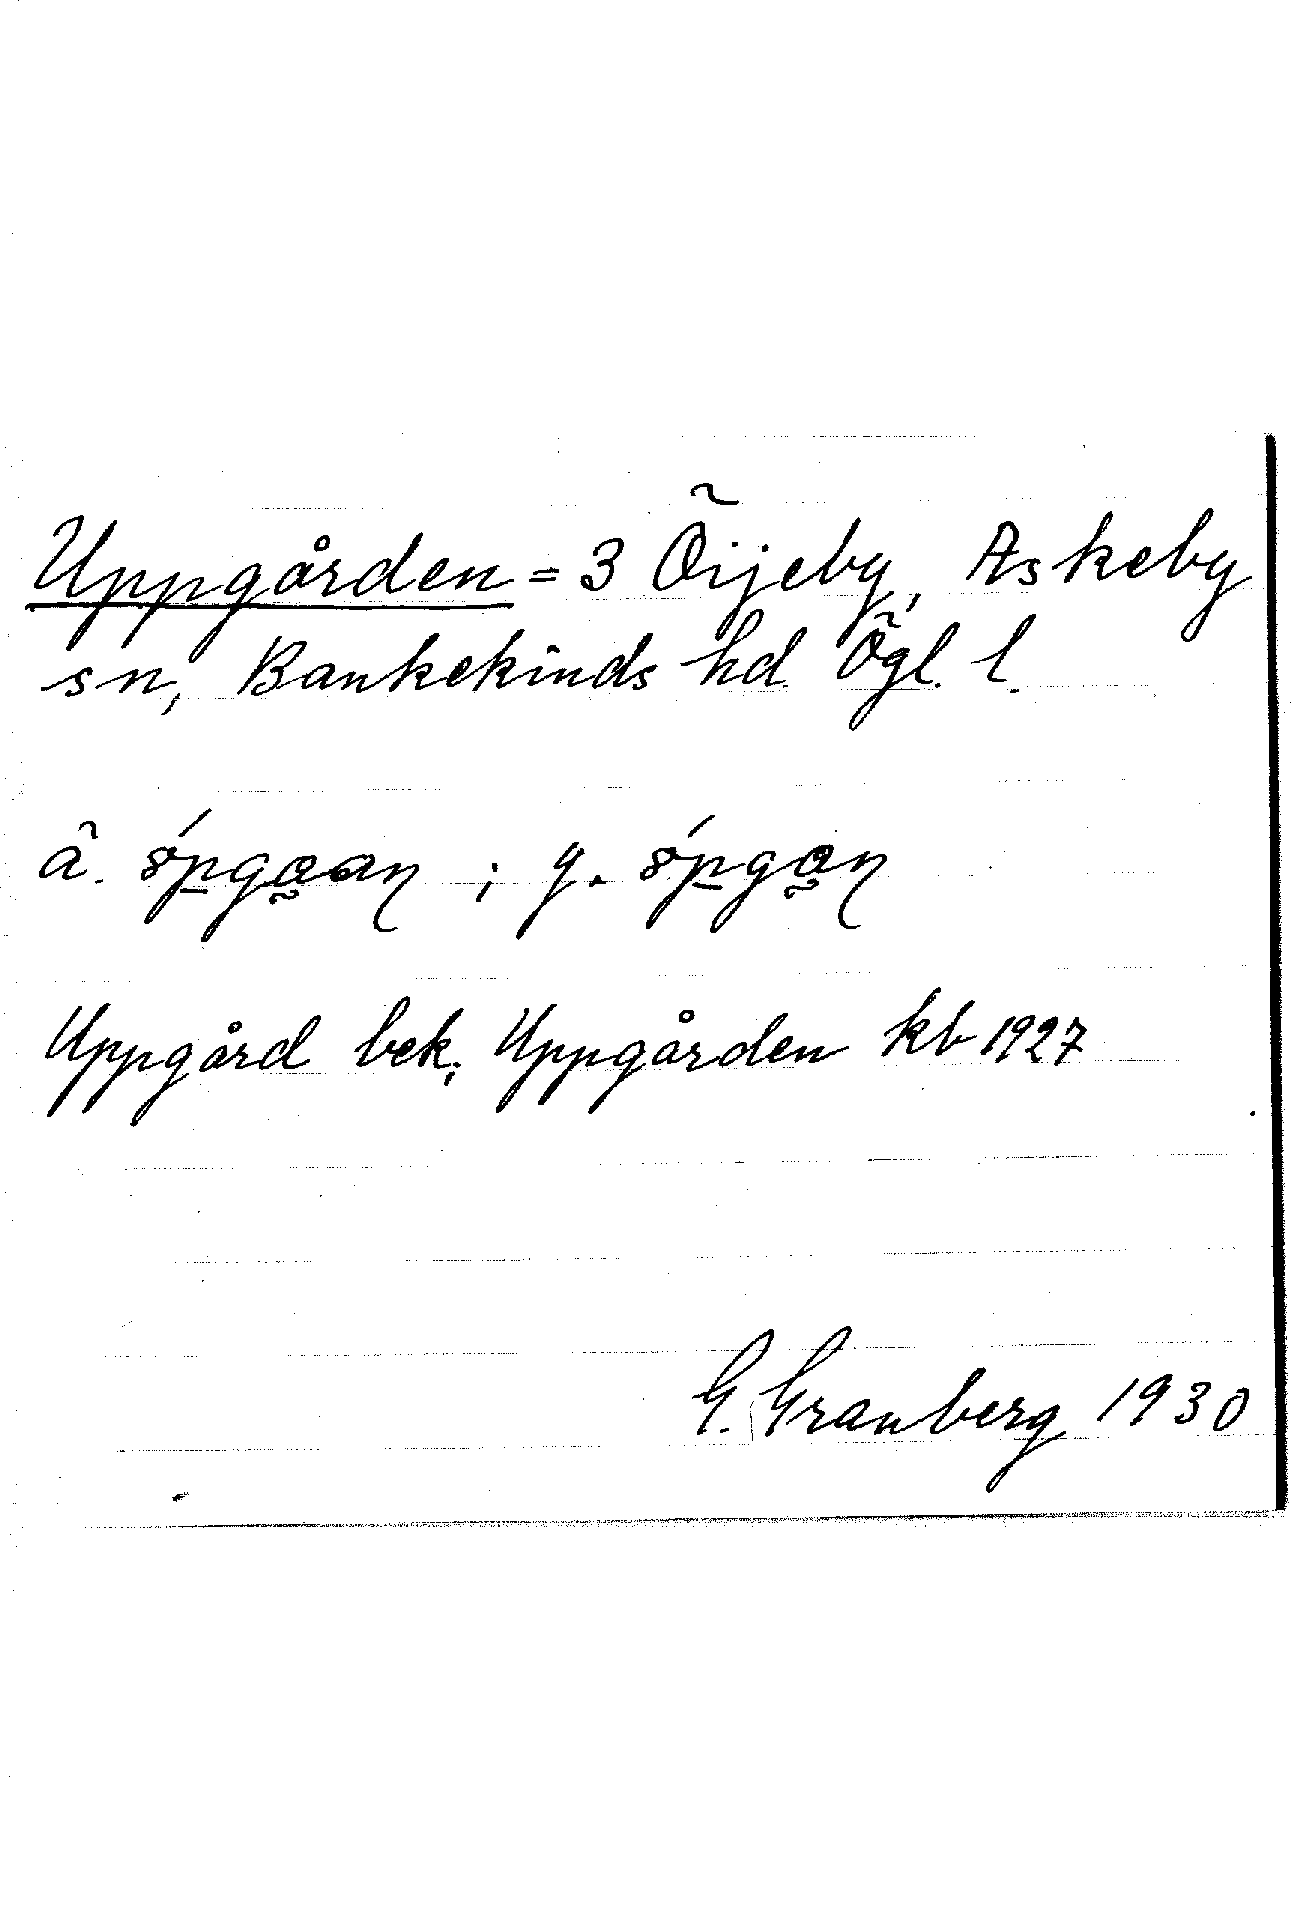 Uppgården = 3 Öijeby, Askeby
sn, Bankekinds hd. Ögl. l.
Uppgård bek; Uppgården kb 1927
G. Granberg 1930